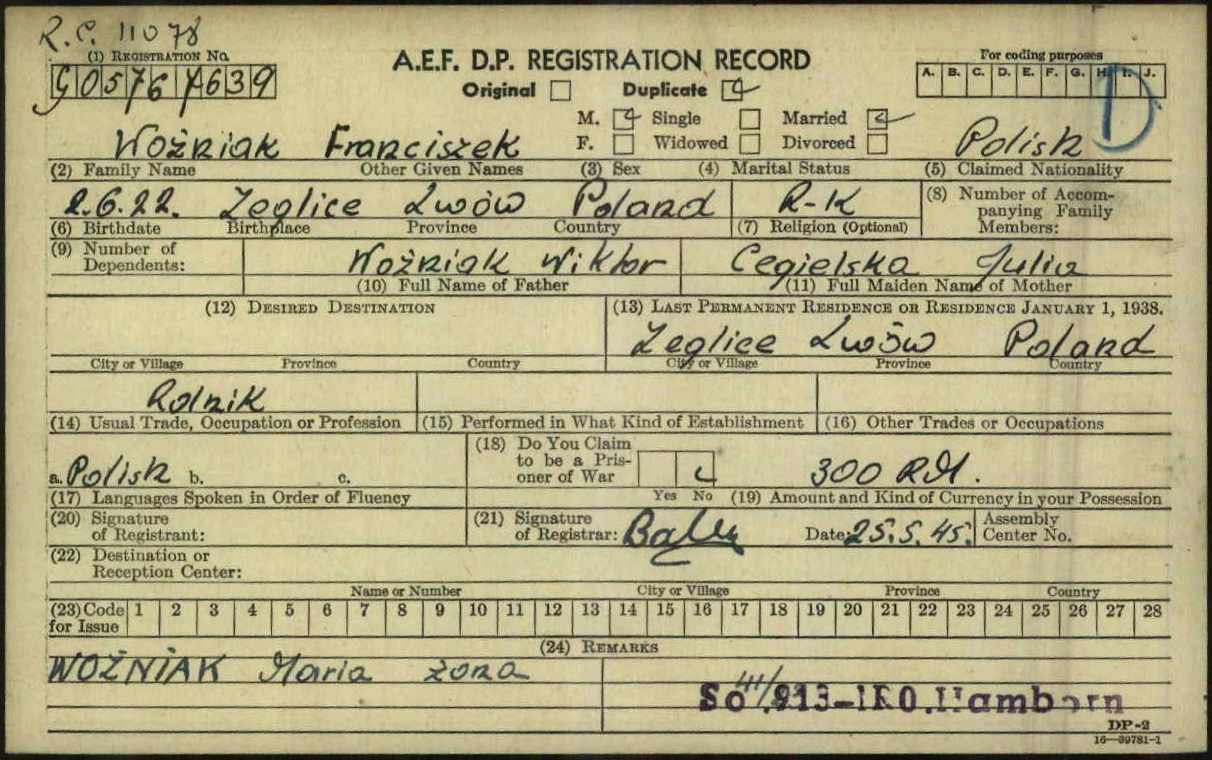 R.C. 11078
(1) REGISTRATION NO.
G05767639
A.E.F. D.P. REGISTRATION RECORD
Original Duplicate
For coding purposes
A. B. C. D. E. F. G. H. I. J.
D
M. Single Married
F. Widowed Divorced
Woźniak Franciszek Polish
(2) Family Name Other Given Names (3) Sex (4) Marital Status (5) Claimed Nationality
2.6.22. Zeglice Lwów Poland R-K
(6) Birthdate Birthplace Province Country (7) Religion (Optional)
(8) Number of Accompanying Family Members:
(9) Number of Dependents:
Woźniak Wiktor Cegielska Julia
(10) Full Name of Father (11) Full Maiden Name of Mother
(12) DESIRED DESTINATION (13) LAST PERMANENT RESIDENCE OR RESIDENCE JANUARY 1, 1938.
Zeglice Lwów Poland
City or Village Province Country City or Village Province Country
Rolnik
(14) Usual Trade, Occupation or Profession (15) Performed in What Kind of Establishment (16) Other Trades or Occupations
a. Polish b. c.
(17) Languages Spoken in Order of Fluency
(18) Do You Claim to be a Prisoner of War
Yes No
300 RM.
(19) Amount and Kind of Currency in your Possession
(20) Signature of Registrant:
(21) Signature of Registrar:
Date: 25.5.45.
Assembly Center No.
(22) Destination or Reception Center:
Name or Number City or Village Province Country
(23) Code for Issue 1 2 3 4 5 6 7 8 9 10 11 12 13 14 15 16 17 18 19 20 21 22 23 24 25 26 27 28
(24) REMARKS
WOŹNIAK Maria żona
913-IRO.Hamborn
DP-2
16—39781-1